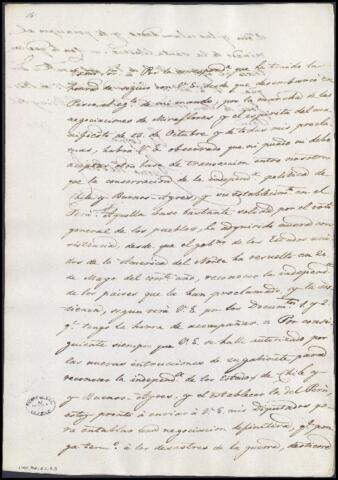 Exmo. Sor. = Por la correspond.a que he tenido la
honra de seguir con V. E. desde que desembarqué en
Pisco, el eg.to de mi mando, por la marcha de las
negociaciones de Miraflores, y el espiritu del ma-
nifiesto de 13, de Octubre y de todas mis procla-
mas, habrá V. E. observado que ni puedo ni debo
aceptar otra base de transaccion entre nosotros
que la conservacion de la independ.a politica de
Chile y Buenos-Ayres, y su establecim.to en el
Perú. Aquella base bastante solida por el voto
general de los pueblos, ha adquirido nueva con-
sistencia, desde que el gob.no de los Estados uni-
dos de la America del Norte ha resuelto en
de Mayo del corr.te año, reconocer la independ.a
de los paises que la han proclamado, y la sos-
tienen, segun verá V. E. por los Docum.tos 1, y 2,
q.e tengo la honra de acompañar. = Por consi-
guiente siempre que V. E. se halle autorizado por
las nuevas intrucciones de su gabinete, para
reconocer la independ.a de los Estados de Chile y
y Buenos-Ayres, y el establecer la del Perú,
estoy pronto á enviar á V. E. mis Diputados para
entablar una negociacion definitiva, q.e pon-
ga term.o á los desastres de la guerra,